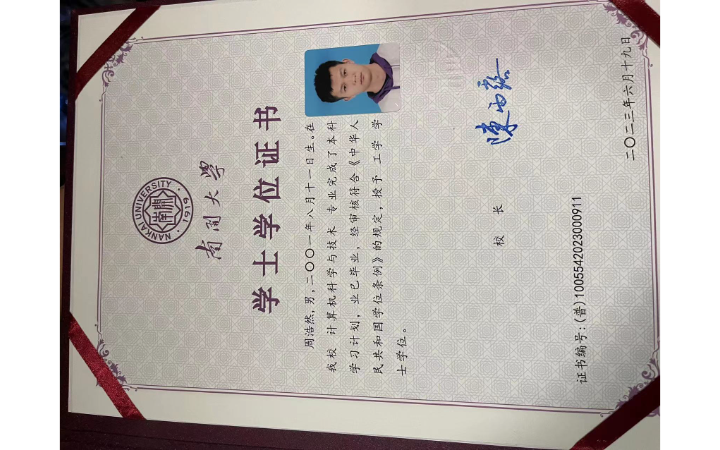 NANKAI UNIVERSITY
南開
1919
南開大学
学士学位证书
周浩然，男，二〇〇一年八月十一日生。在
我校 计算机科学与技术 专业完成了本科
学习计划，业已毕业，经审核符合《中华人
民共和国学位条例》的规定，授予 工学 学
士学位。
校 长
陈雨露
证书编号:(普)1005542023000911
二〇二三年六月十九日